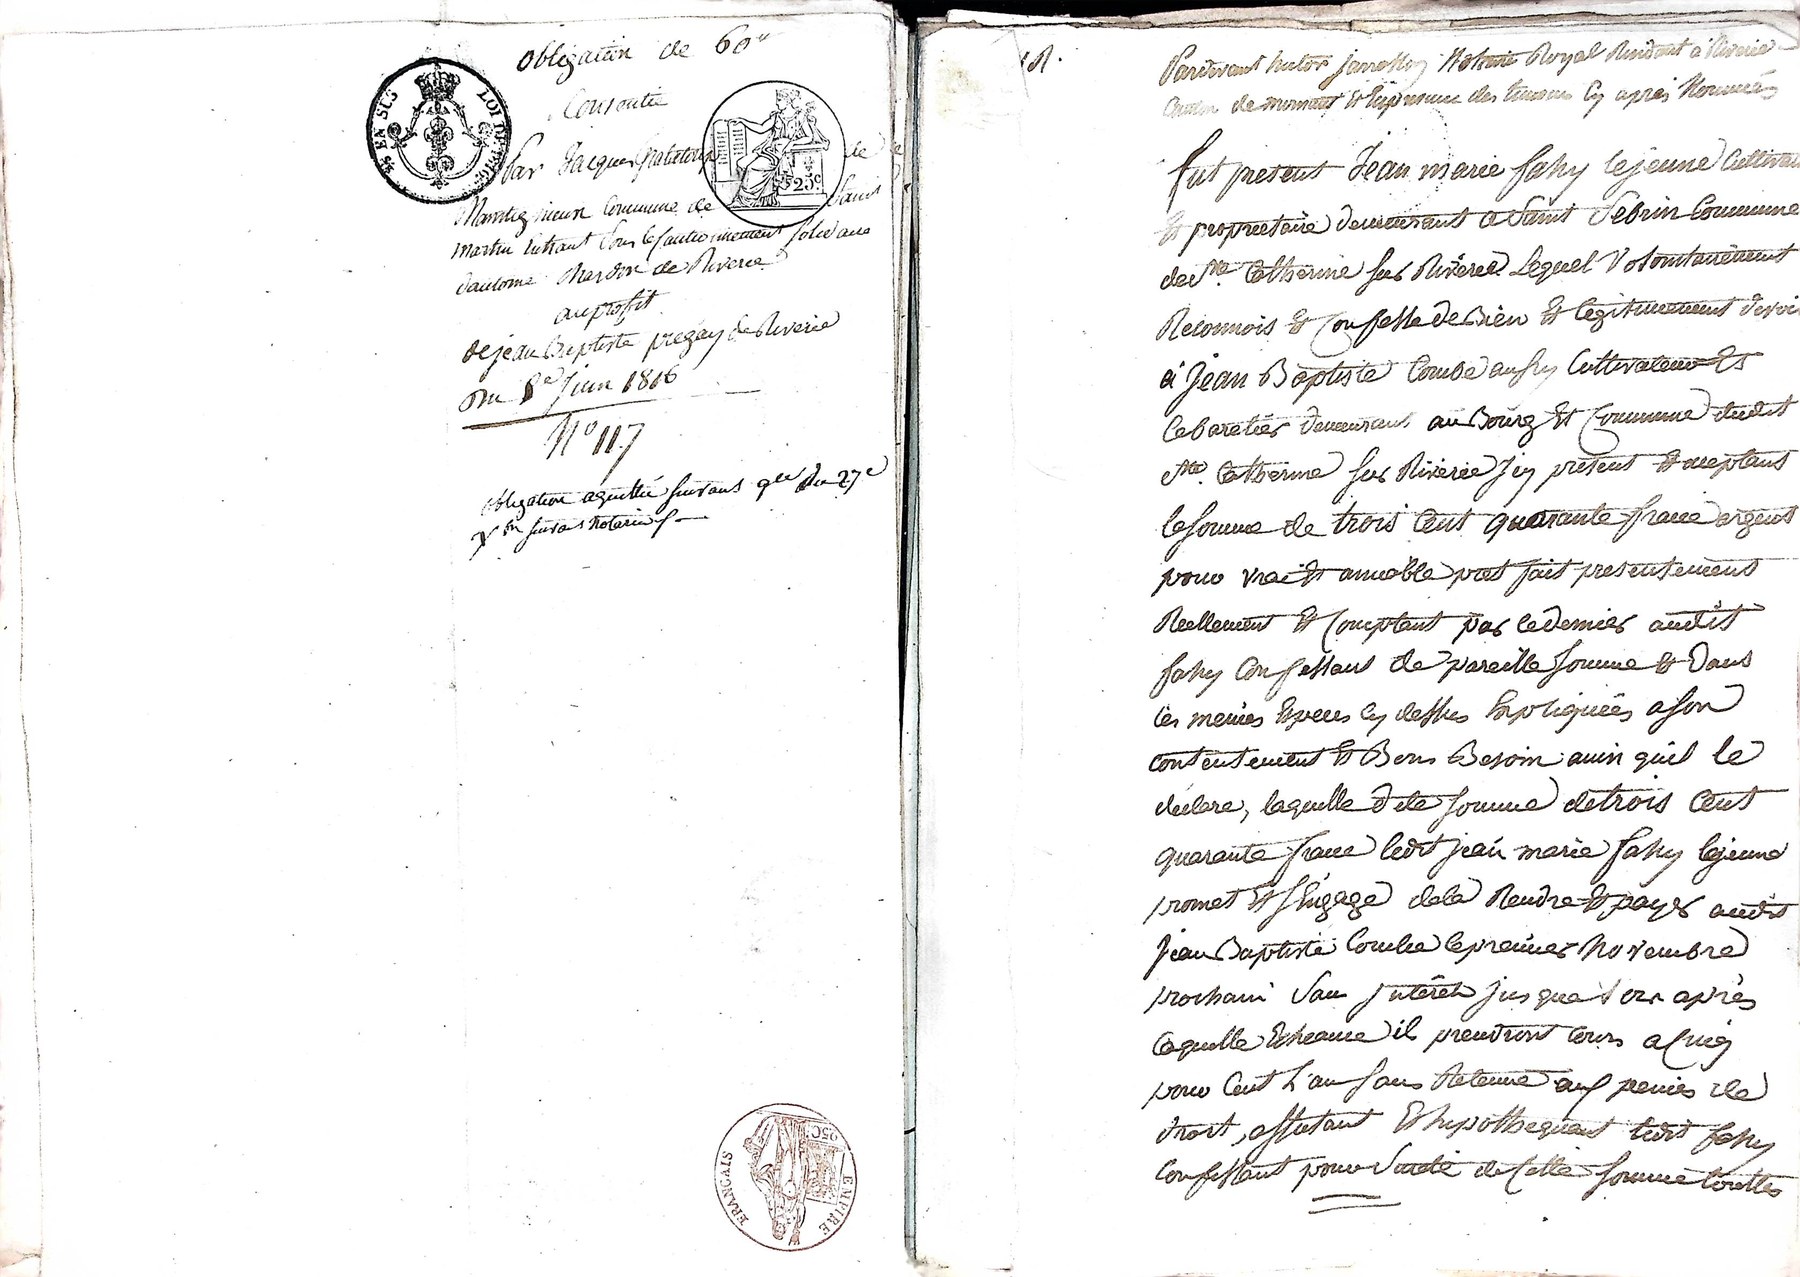 obligation de 60"
Consentie
par Jacques
Commune de Saint
martin Sous le Cautionnement solidaire
d'antoine de Riverie
au profit
de jean Baptiste de Riverie
Du juin 1816
N° 117
obligation suivant du 27e
suivant
EN SUS LOI DU
25c
EMPIRE FRANCAIS
Pardevant notaire Royal Residant à Riverie
Canton de mornant Et En presence des temoins Cy après Nommés
fut present Jean marie fahy lejeune Cultivateur
Et proprietaire demeurant a Saint Commune
de Ste. Catherine Sur Riverie. Lequel Volontairement
Reconnois Et Confesse de Bien Et legitimement devoir
à Jean Baptiste Combe Cultivateur Et
Cabaretier demeurant au Bourg Et Commune dudit
Ste. Catherine Sur Riverie Jcy present Et acceptant
la Somme de trois Cent quarante franc argent
pour vrai Et amiable pret fait presentement
Reellement Et Comptant par ce dernier audit
fahy Confessant de pareille Somme Et Dans
les memes Especes cy dessus Expliquées a son
contentement Et Bon Besoin ainsi quil le
declare, laquelle dite Somme de trois Cent
quarante franc ledit jean marie fahy lejeune
promet Et S'Engage de la Rendre Et payer audit
Jean Baptiste Combe le premier Novembre
prochain Sans Jnterêt Jusque Lors après
laquelle Echeance il prendront Cours a Cinq
pour Cent L'an Sans Retenue aux peines de
droit, affectant Et hypothequant ledit fahy
Confessant pour Sureté de Cette Somme touttes